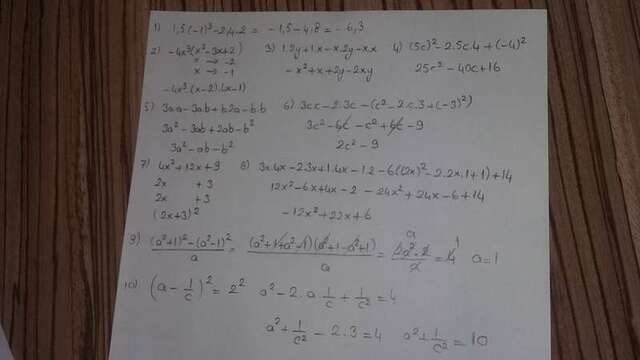 1) 1,5.(-1)³-2,4.2 = -1,5-4,8 = -6,3
2) -4x³(x²-3x+2)
x → -2
x → -1
-4x³.(x-2).(x-1)
3) 1.2y+1.x-x.2y-x.x
-x²+x+2y-2xy
4) (5c)²-2.5c.4+(-4)²
25c²-40c+16
5) 3a.a-3ab+b2a-b.b
3a²-3ab+2ab-b²
3a²-ab-b²
6) 3c.c-2.3c-(c²-2.c.3+(-3)²)
3c²-6c-c²+6c-9
2c²-9
7) 4x²+12x+9
2x +3
2x +3
(2x+3)²
8) 3x.4x-2.3x+1.4x-1.2-6((2x)²-2.2x.1+1)+14
12x²-6x+4x-2-24x²+24x-6+14
-12x²+22x+6
9) (a²+1)²-(a²-1)²/a = (a²+1+a²-1)(a²+1-a²+1)/a = 2a².2/a = 4 a=1
10) (a-1/c)²=2² a²-2.a.1/c+1/c²=4
a²+1/c²-2.3=4 a²+1/c²=10